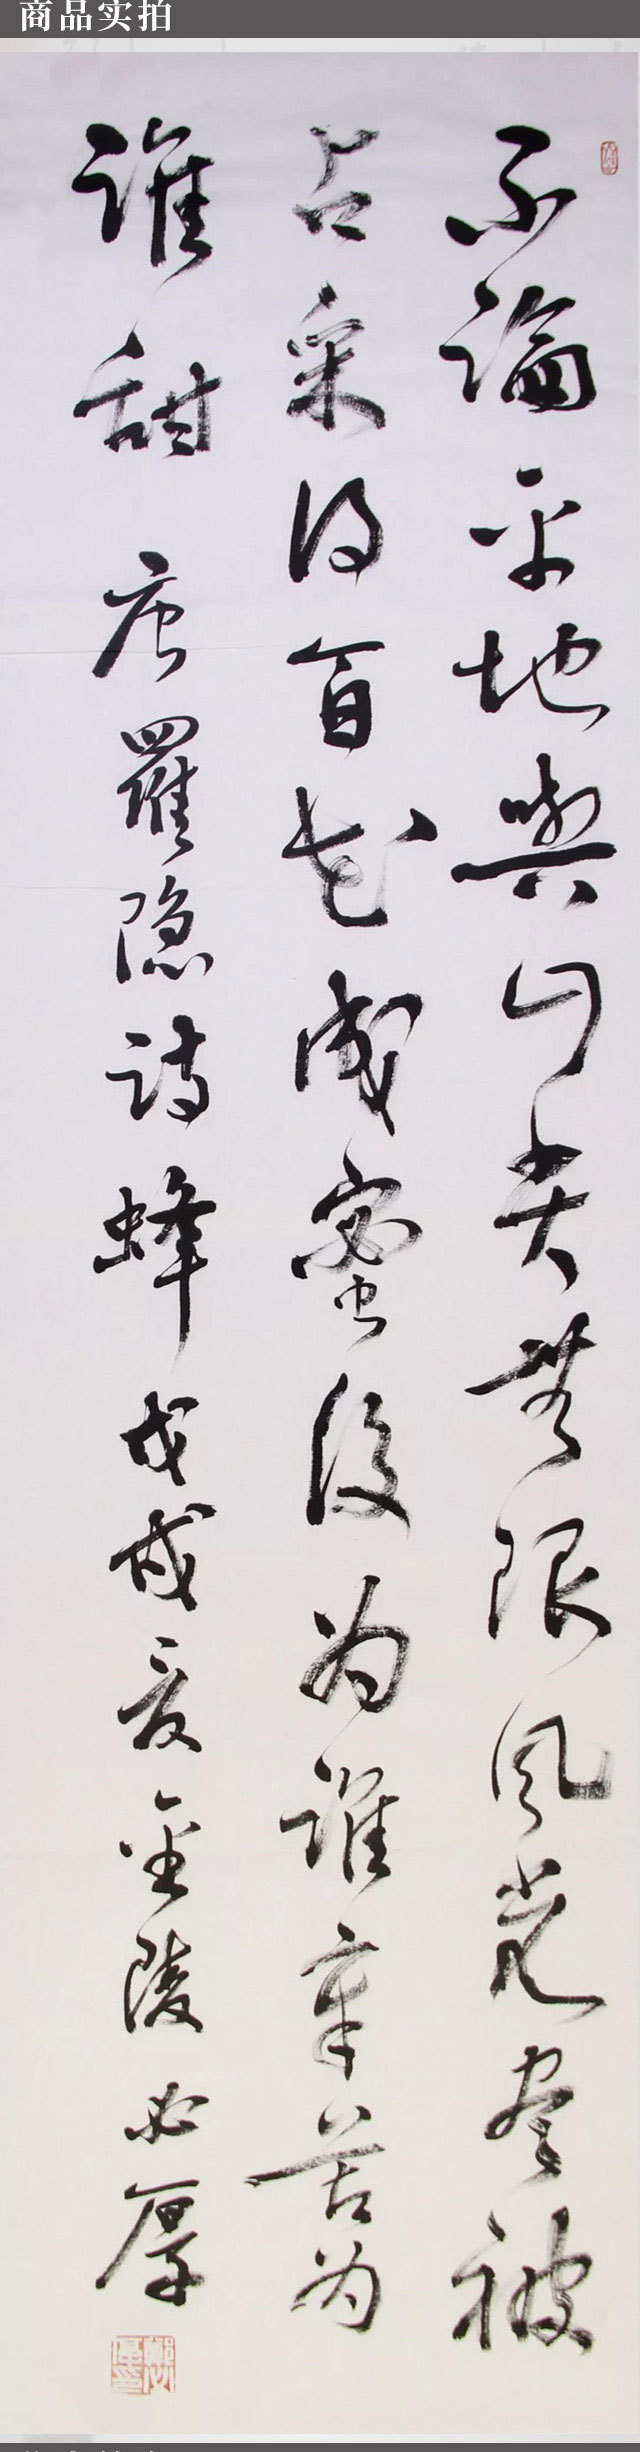 商品实拍
不論平地與山尖無限風光盡被
占采得百花成蜜後为誰辛苦为
誰甜 唐羅隐詩蜂戊戌夏金陵必厚